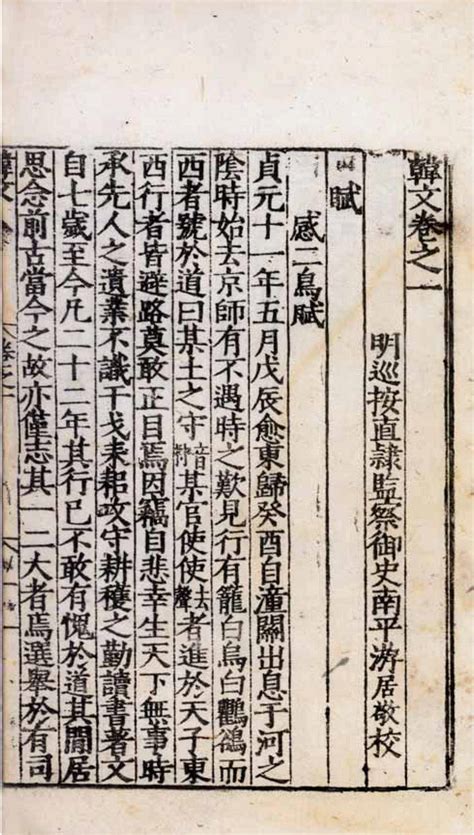 韓文卷之一
明巡按直隸監察御史南平游居敬校
賦
感二鳥賦
貞元十一年五月戊辰愈東歸癸酉自潼關出息于河之
陰時始去京師有不遇時之歎見行有籠白烏白鸜鵒而
西者號於道曰某土之守音某官使使去聲者進於天子東
西行者皆避路莫敢正目焉因竊自悲幸生天下無事時
承先人之遺業不識干戈耒耜攻守耕穫之勤讀書著文
自七歲至今凡二十二年其行已不敢有愧於道其閒居
思念前古當今之故亦僅志其一二大者焉選舉於有司
韓文